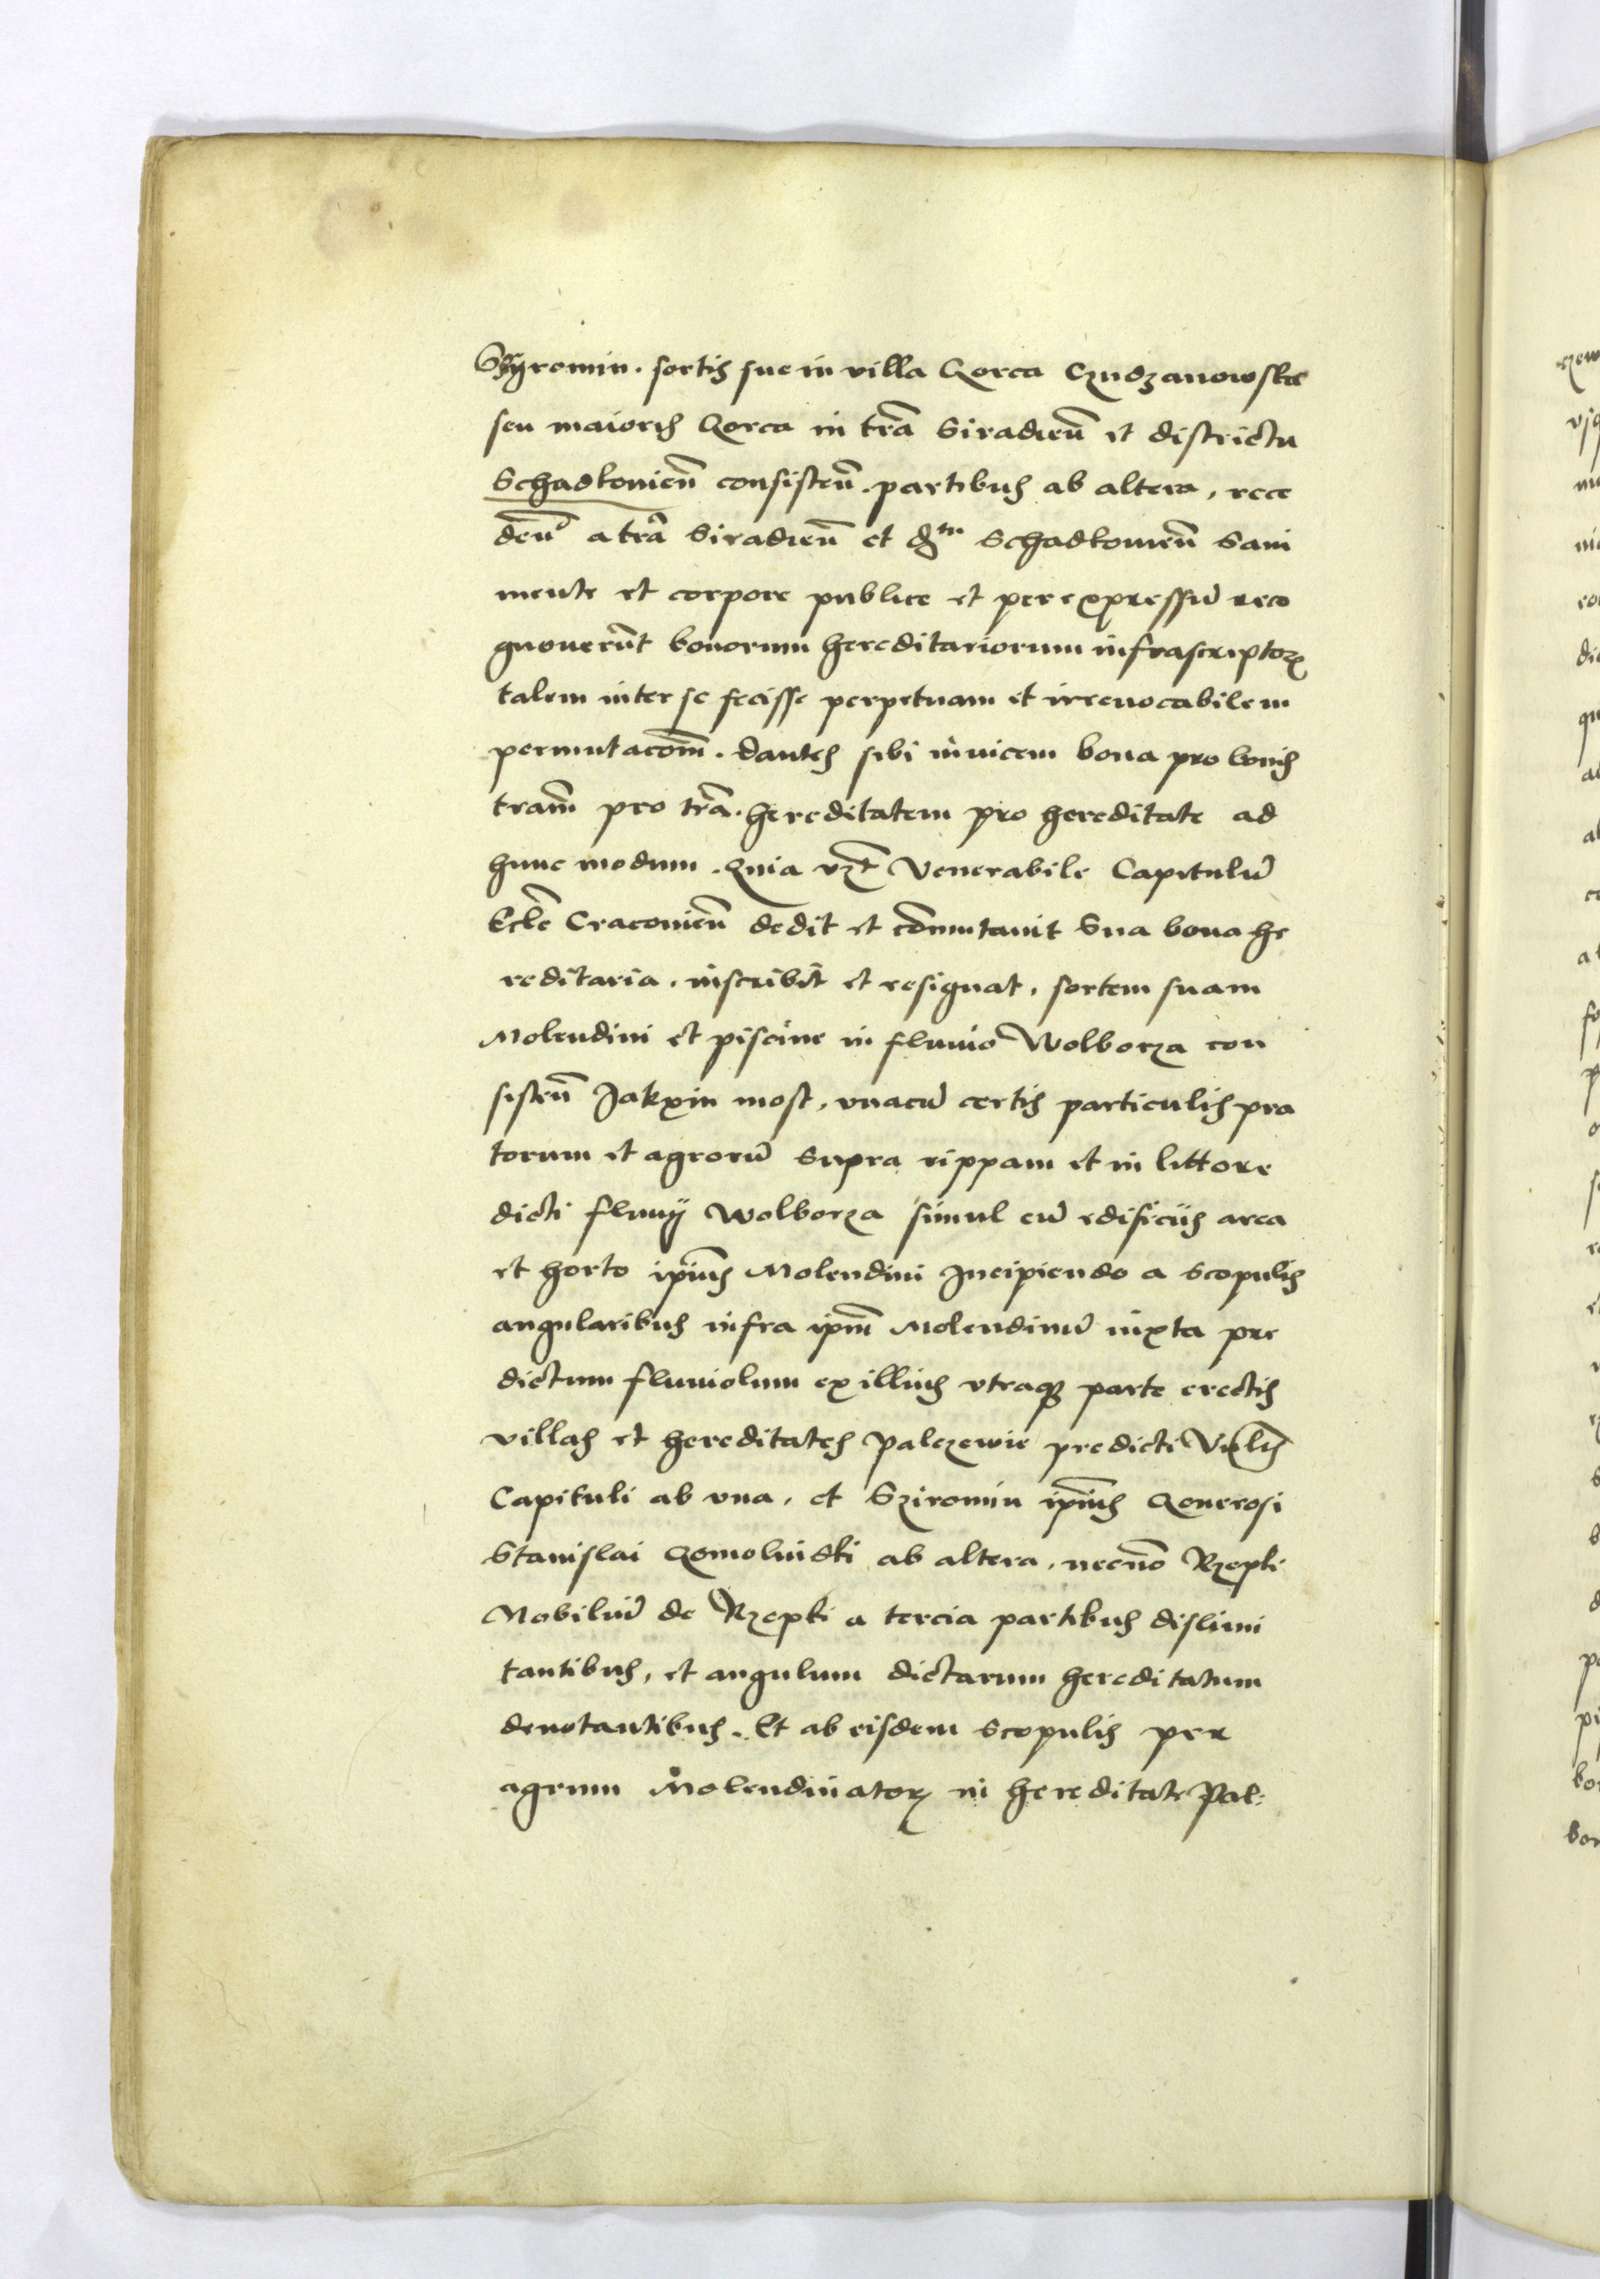 Szyromin. sortis sue in villa Gorca Czudzanowska
seu maioris Gorca in tra͞ Siradien̄ et districtu
Schadkovien̄ consisten̄. partibus ab altera, rece
den̄ a tra͞ Siradien̄ et dtu Schadkovien̄ Sani
mente et corpore publice et per expressu͞ reco
gnoueru͞t bonorum hereditariorum infrascriptoꝝ
talem inter se fecisse perpetuam et irreuocabilem
permutaco͞m. dantes sibi inuicem bona pro bonis
tra͞m pro tra͞. hereditatem pro hereditate ad
hunc modum. Quia vz͞t Venerabile Capitulu͞
Eccle͞ Cracovien̄ dedit et co͞mutauit Sua bona he
reditaria. inscribit et resignat, sortem suam
Molendini et piscine in fluuio Wolborza con
sisten̄ Jakxin most, vnacu͞ certis particulis pra
torum et agroru͞ supra rippam et in littore
dicti fluuij Wolborza simul cu͞ edificiis area
et horto ip͞ius Molendini Incipiendo a scopulis
angularibus infra ip͞m Molendinu͞ iuxta pre
dictum fluuiolum ex illius vtraqꝫ parte erectis
villas et hereditates Palczewie predicti Vn͞lis
Capituli ab vna, et Sziromin ip͞ius Generosi
Stanislai Gomolinski ab altera, necno͞ Rzepki
Nobiliu͞ de Rzepki a tercia partibus dislimi
tantibus, et angulum dictarum hereditatum
denotantibus. Et ab eisdem scopulis per
agrum Molendinatoꝝ in hereditate Pal: